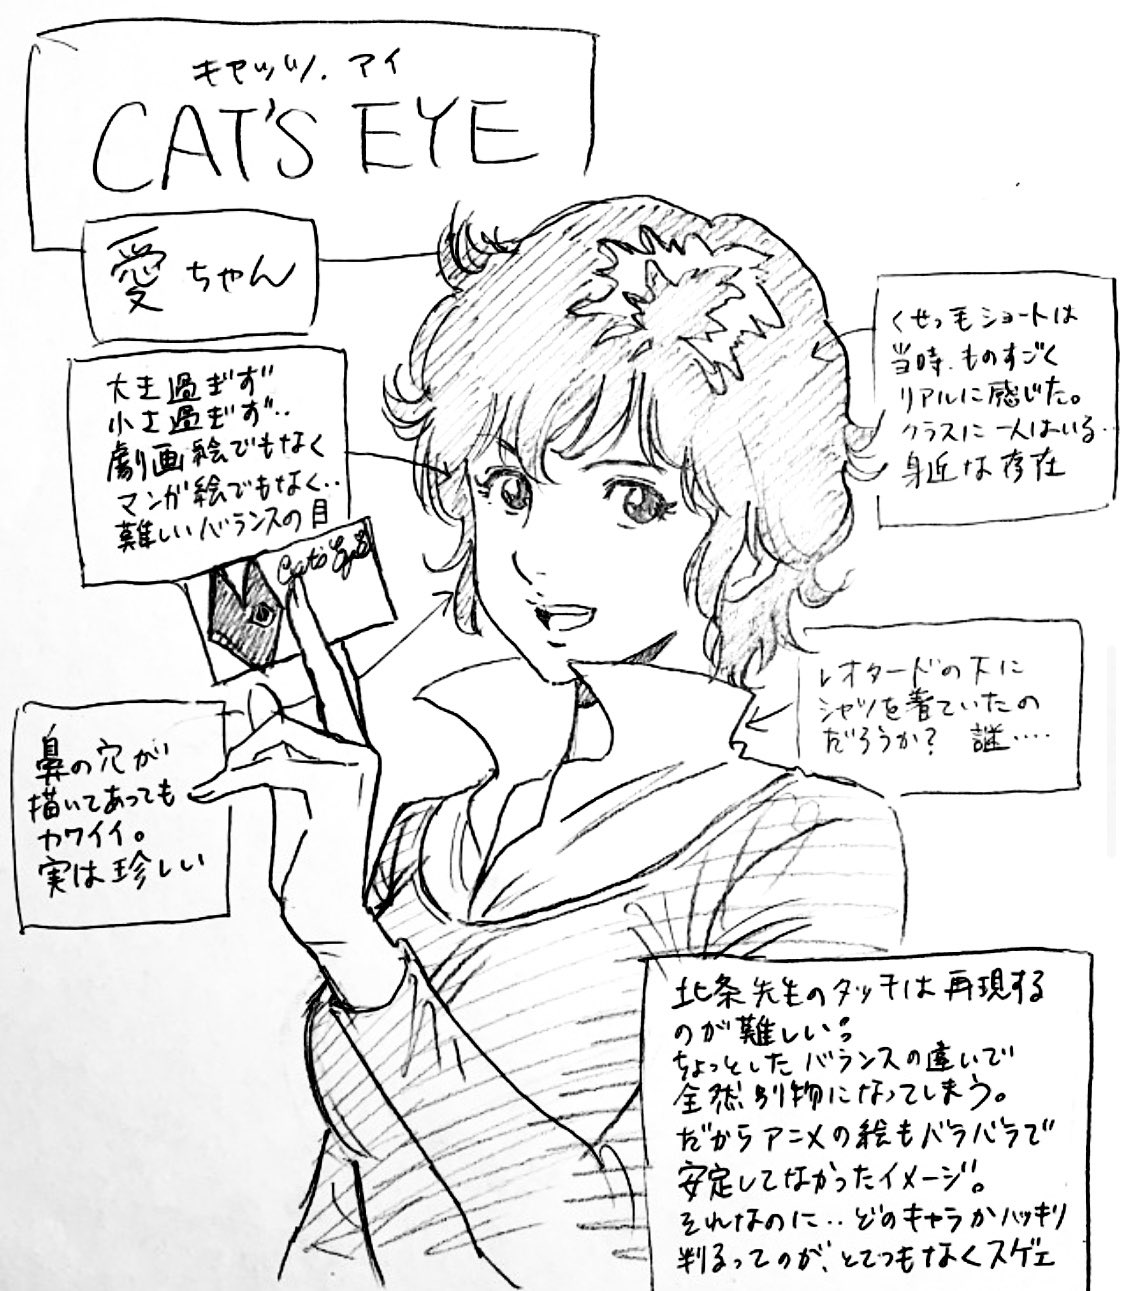 キャッツ・アイ
CAT'S EYE
愛ちゃん
大き過ぎず
小さ過ぎず‥
劇画絵でもなく
マンガ絵でもなく‥
難しいバランスの目
Cat's Eye
くせっ毛ショートは
当時、ものすごく
リアルに感じた。
クラスに一人はいる‥
身近な存在
レオタードの下に
シャツを着ていたの
だろうか? 謎‥‥
鼻の穴が
描いてあっても
カワイイ。
実は珍しい
北条先生のタッチは再現する
のが難しい。
ちょっとしたバランスの違いで
全然別物になってしまう。
だからアニメの絵もバラバラで
安定してなかったイメージ。
それなのに‥どのキャラかハッキリ
判るってのが、とてつもなくスゲェ